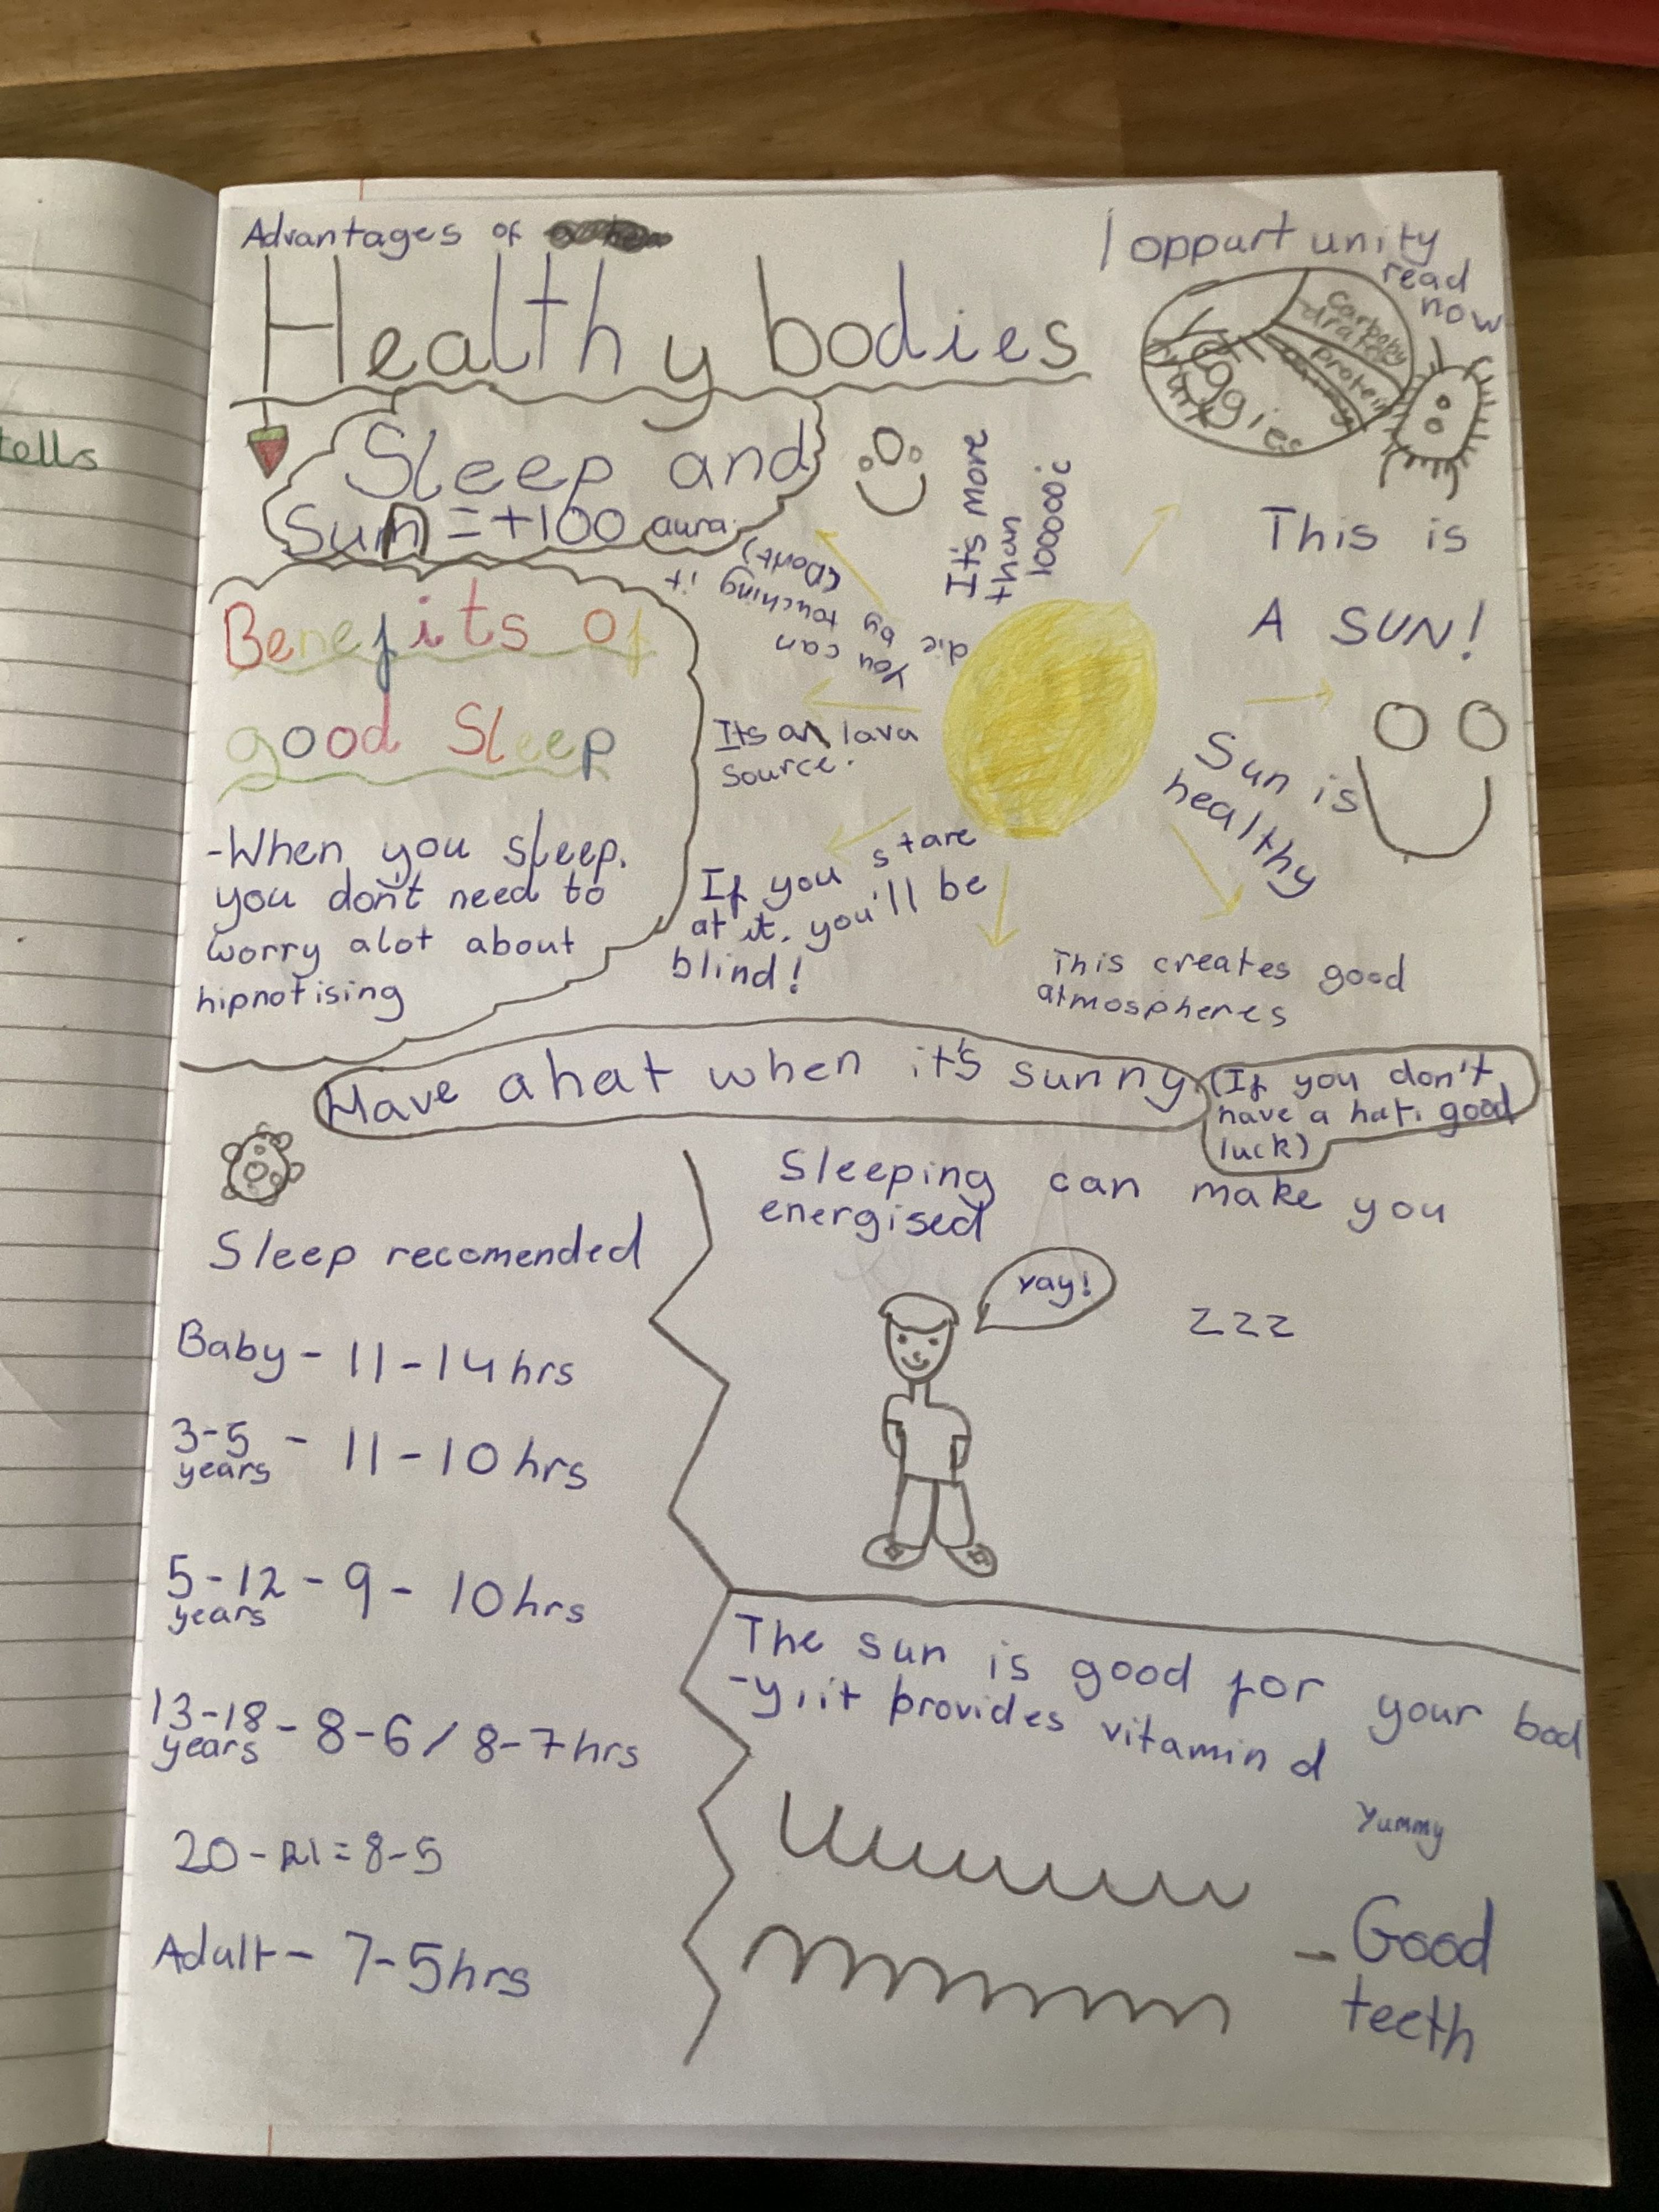 tells
Advantages of
Healthy bodies
1 oppurtunity
read
now
carbohy
drates
protein
dairy
veggies
fruit
Sleep and
Sun = +100 aura
Benefits of
good Sleep
-When you sleep.
you don't need to
worry alot about
hipnotising
It's more
than
100000°c
You can
die by
touching it
(Don't)
Its a lava
source.
If you stare
at it. you'll be
blind!
This is
A SUN!
Sun is
healthy
This creates good
atmospheres
Have a hat when it's sunny
(If you don't
have a hat. good
luck)
Sleep recomended
Baby - 11-14hrs
3-5 - 11-10hrs
years
5-12 - 9 - 10hrs
years
13-18 - 8-6 / 8-7hrs
years
20-21 = 8-5
Adult - 7-5hrs
Sleeping can make you
energised
Yay!
zzz
The sun is good for your bod
-y, it provides vitamin d
Yummy
- Good
teeth